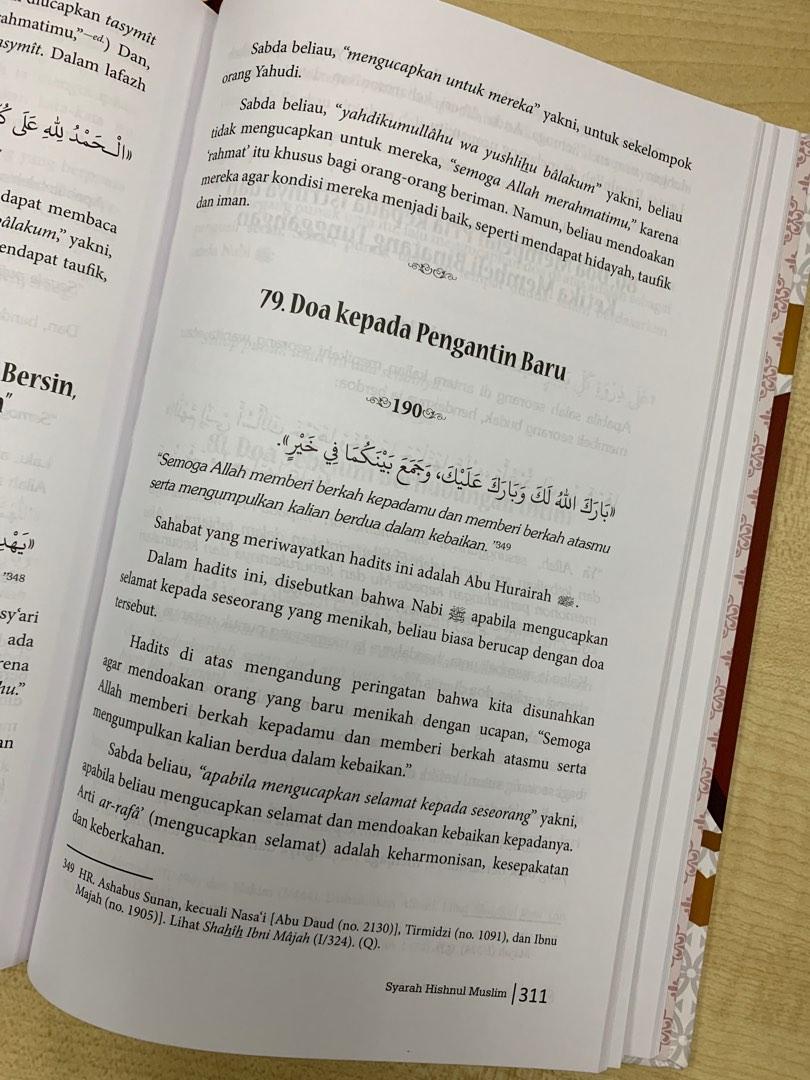 diucapkan tasymît
rahmatimu,"—ed.) Dan,
asymît. Dalam lafazh
«الْحَمْدُ لِلهِ عَلَى
dapat membaca
bâlakum," yakni,
endapat taufik,
Bersin,
"
348
sy'ari
ada
rena
hu."
an
Sabda beliau, "mengucapkan untuk mereka" yakni, untuk sekelompok
orang Yahudi.
Sabda beliau, "yahdikumullâhu wa yushlihu bâlakum" yakni, beliau
tidak mengucapkan untuk mereka, "semoga Allah merahmatimu," karena
'rahmat' itu khusus bagi orang-orang beriman. Namun, beliau mendoakan
mereka agar kondisi mereka menjadi baik, seperti mendapat hidayah, taufik
dan iman.
79. Doa kepada Pengantin Baru
190
«بَارَكَ اللهُ لَكَ وَبَارَكَ عَلَيْكَ، وَجَمَعَ بَيْنَكُمَا فِي خَيْرٍ».
"Semoga Allah memberi berkah kepadamu dan memberi berkah atasmu
serta mengumpulkan kalian berdua dalam kebaikan. "349
Sahabat yang meriwayatkan hadits ini adalah Abu Hurairah.
Dalam hadits ini, disebutkan bahwa Nabi ﷺ apabila mengucapkan
selamat kepada seseorang yang menikah, beliau biasa berucap dengan doa
tersebut.
Hadits di atas mengandung peringatan bahwa kita disunahkan
agar mendoakan orang yang baru menikah dengan ucapan, "Semoga
Allah memberi berkah kepadamu dan memberi berkah atasmu serta
mengumpulkan kalian berdua dalam kebaikan."
Sabda beliau, "apabila mengucapkan selamat kepada seseorang" yakni,
apabila beliau mengucapkan selamat dan mendoakan kebaikan kepadanya.
Arti ar-rafâ' (mengucapkan selamat) adalah keharmonisan, kesepakatan
dan keberkahan.
349 HR. Ashabus Sunan, kecuali Nasa'i [Abu Daud (no. 2130)], Tirmidzi (no. 1091), dan Ibnu
Majah (no. 1905)]. Lihat Shahîh Ibni Mâjah (I/324). (Q).
Syarah Hishnul Muslim | 311